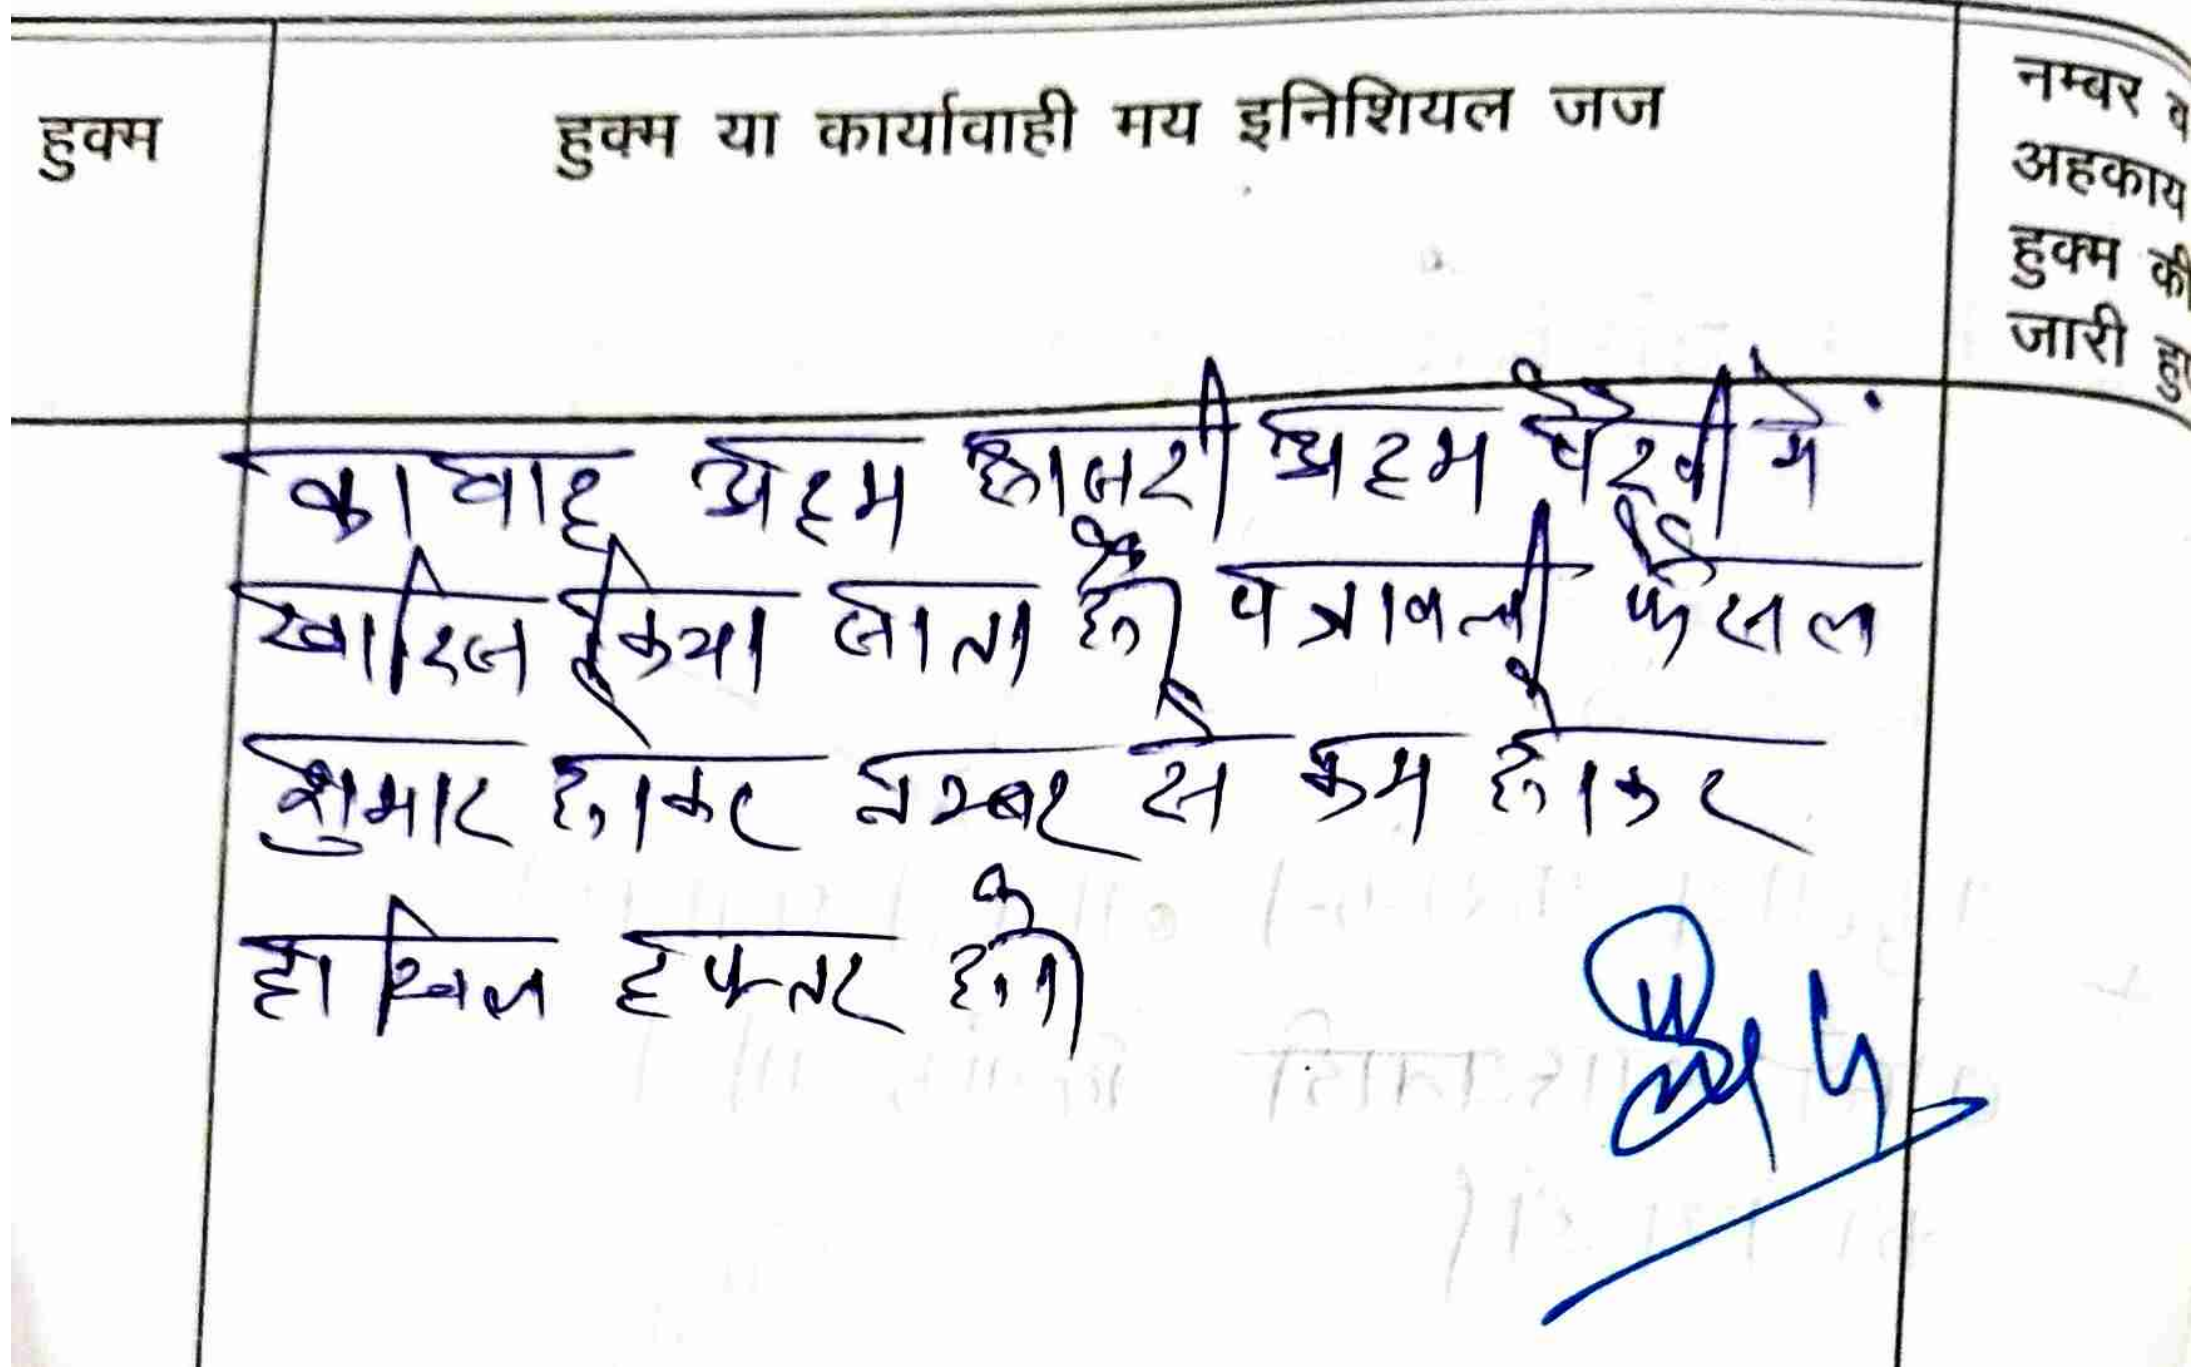 हुक्म
हुक्म या कार्यावाही मय इनिशियल जज
नम्बर व
अहकाय
हुक्म की
जारी हु
का वाद अदम हाजरी अदम पैरवी में
खारिज किया जाता है। पत्रावली फैसल
शुमार होकर नम्बर से कम होकर
दाखिल दफ्तर हो।